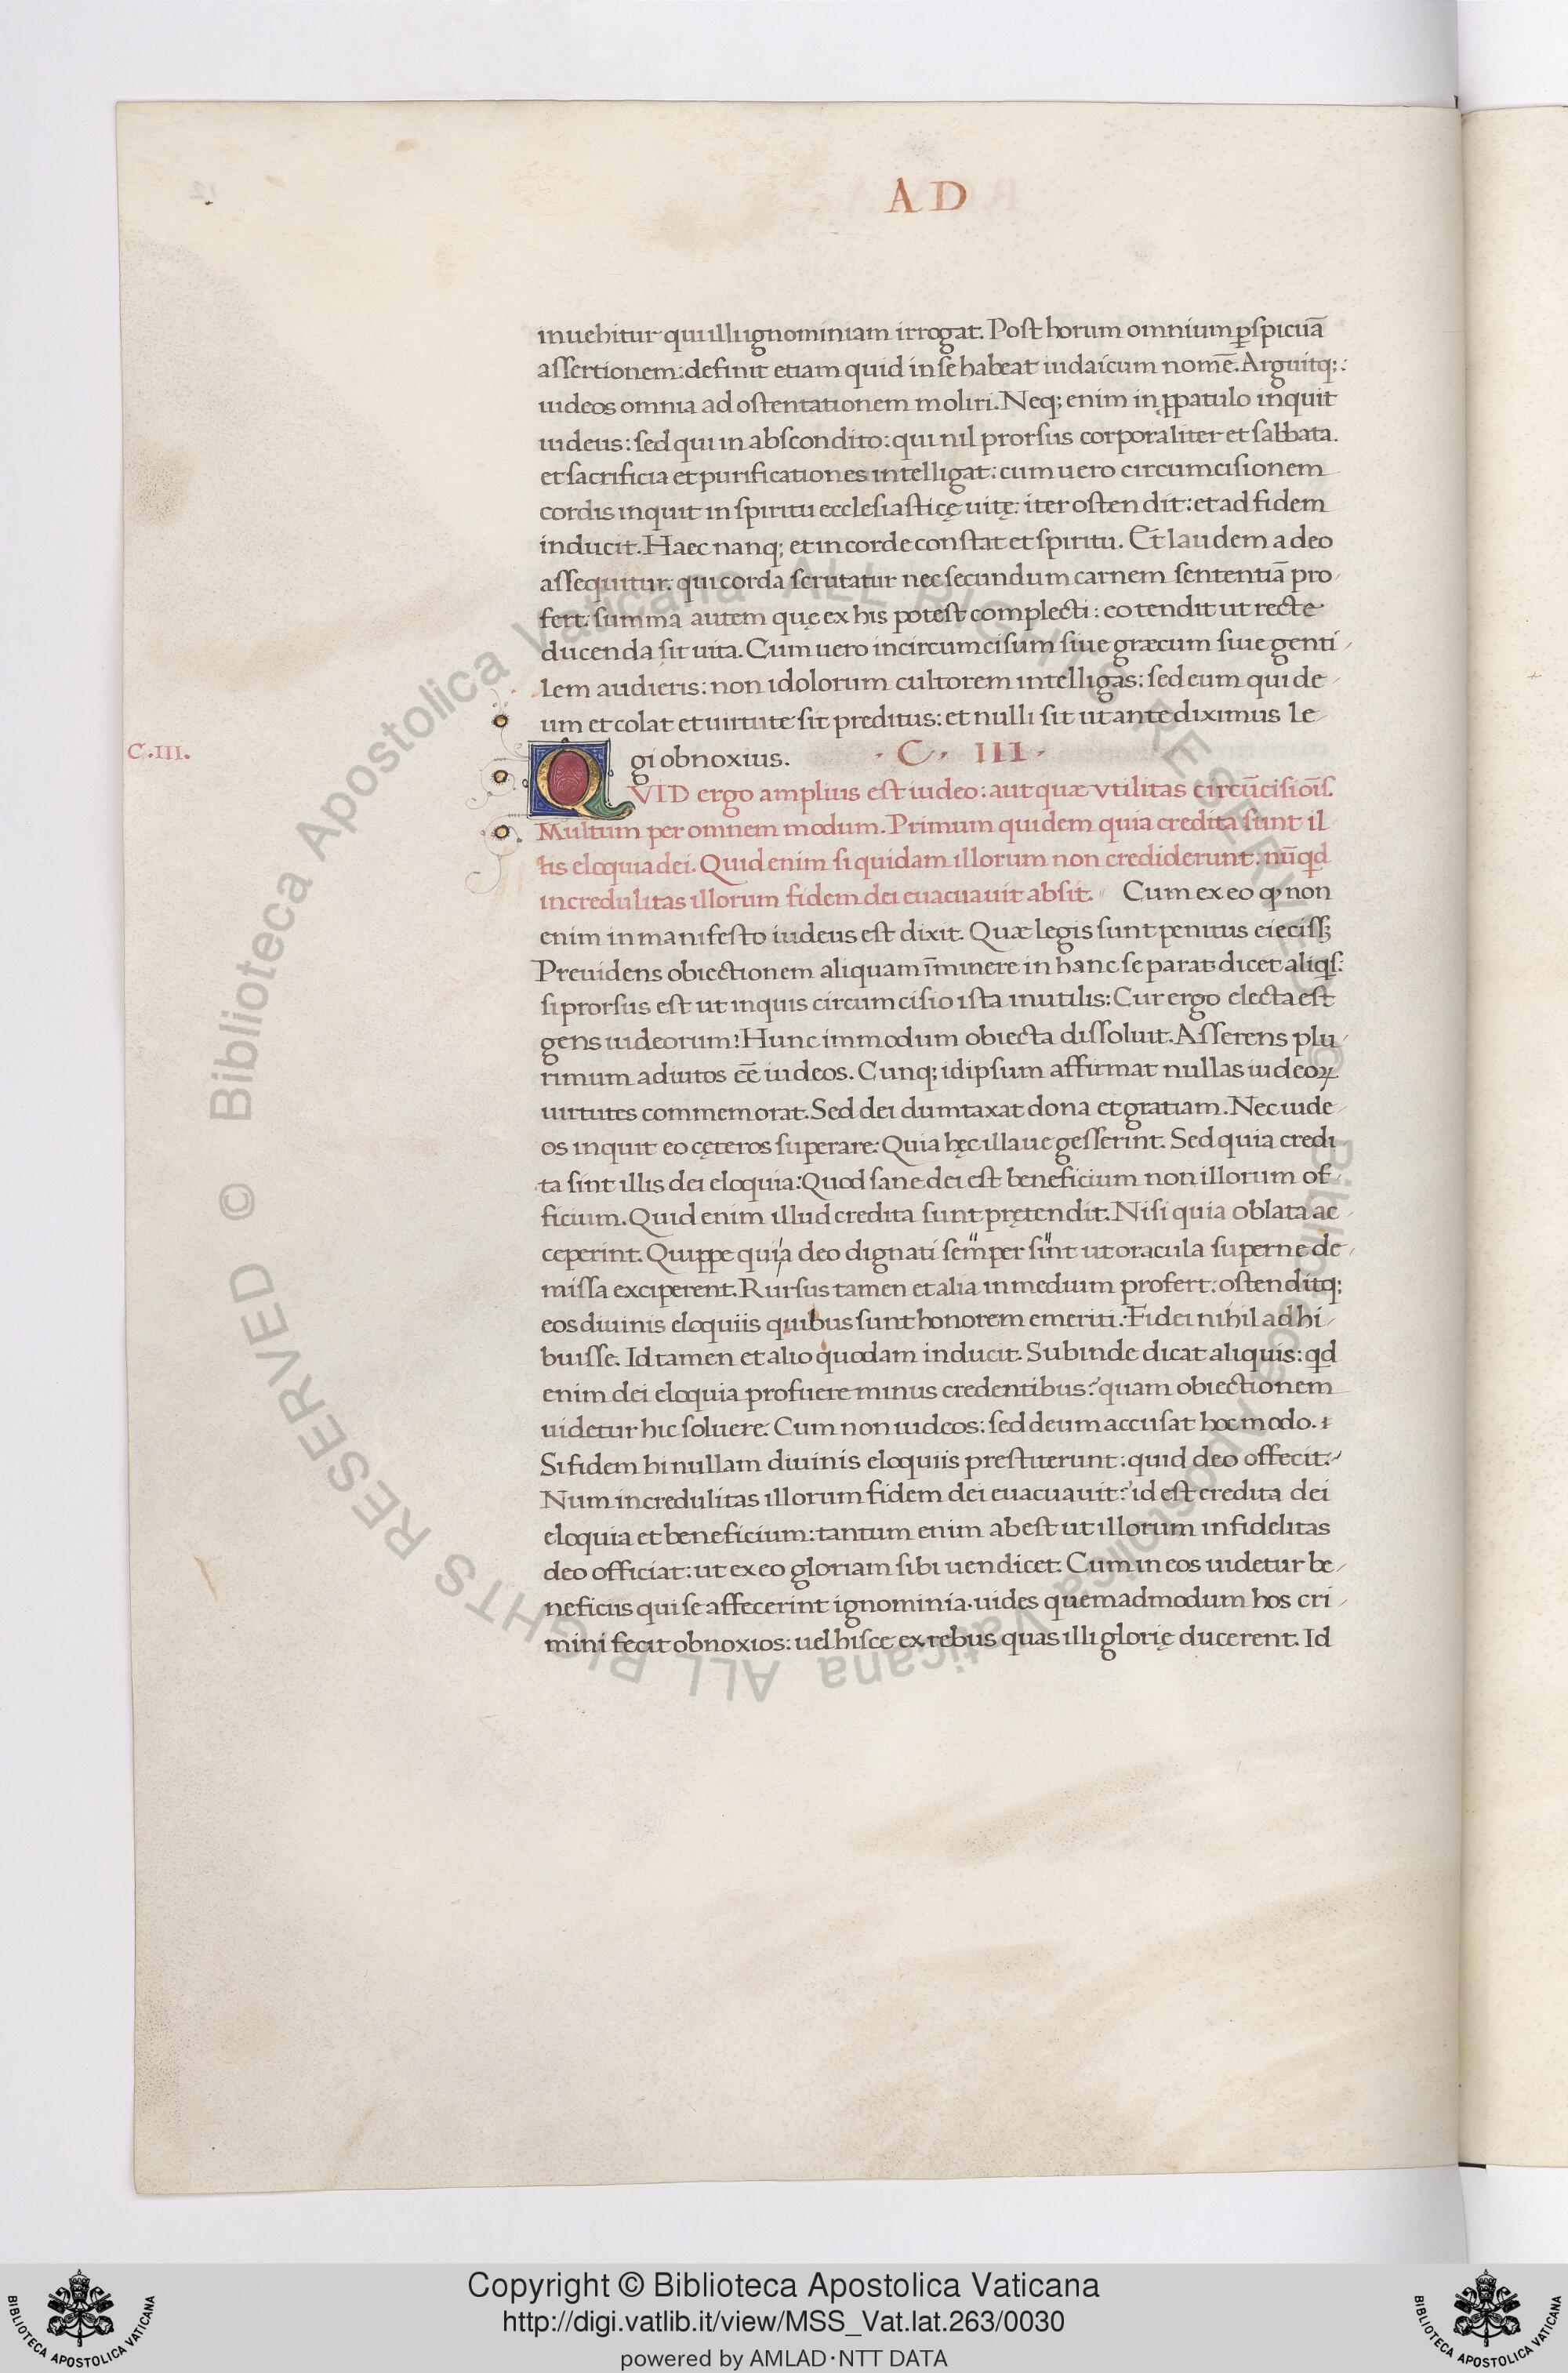 AD
inuehitur qui illi ignominiam irrogat. Post horum omnium ꝑspicuā
assertionem: definit etiam quid in se habeat iudaicum nomē. Arguitq;:
iudeos omnia ad ostentationem moliri. Neq; enim in ꝓpatulo inquit
iudeus: sed qui in abscondito: qui nil prorsus corporaliter et sabbata.
et sacrificia et purificationes intelligat: cum uero circumcisionem
cordis inquit in spiritu ecclesiasticę uitę: iter ostendit: et ad fidem
inducit. Haec nanq; et in corde constat et spiritu. Et laudem a deo
assequitur: qui corda scrutatur nec secundum carnem sententiā pro
fert: summa autem quę ex his potest complecti: eo tendit ut recte
ducenda sit uita. Cum uero incircumcisum siue græcum siue genti
lem audieris: non idolorum cultorem intelligas: sed eum qui de
um et colat et uirtute sit preditus: et nulli sit ut ante diximus le
gi obnoxius. · C · III ·
C.III.
QVID ergo amplius est iudeo: aut quæ vtilitas circūcisiōīs.
Multum per omnem modum. Primum quidem quia credita sunt il
lis eloquia dei. Quid enim si quidam illorum non crediderunt. nūqd
incredulitas illorum fidem dei euacuauit absit. Cum ex eo ꝙ non
enim in manifesto iudeus est dixit. Quæ legis sunt penitus eiecissꝫ
Preuidens obiectionem aliquam īminere in hanc se parat dicet aliqs:
si prorsus est ut inquis circumcisio ista inutilis: Cur ergo electa est
gens iudeorum? Hunc immodum obiecta dissoluit. Asserens plu
rimum adiutos eē iudeos. Cunq; idipsum affirmat nullas iudeoꝝ
uirtutes commemorat. Sed dei dumtaxat dona et gratiam. Nec iude
os inquit eo cęteros superare: Quia hęc illaue gesserint. Sed quia credi
ta sint illis dei eloquia: Quod sane dei est beneficium non illorum of
ficium. Quid enim illud credita sunt prętendit. Nisi quia oblata ac
ceperint. Quippe quia deo dignati semper sint ut oracula superne de
missa exciperent. Rursus tamen et alia in medium profert: ostenditq;
eos diuinis eloquiis quibus sunt honorem emeriti: Fidei nihil adhi
buisse. Id tamen et alio quodam inducit. Subinde dicat aliquis: qd
enim dei eloquia profuere minus credentibus? quam obiectionem
uidetur hic soluere. Cum non iudeos: sed deum accusat hoc modo.
Si fidem hi nullam diuinis eloquiis prestiterunt: quid deo offecit?
Num incredulitas illorum fidem dei euacuauit? id est credita dei
eloquia et beneficium: tantum enim abest ut illorum infidelitas
deo officiat: ut ex eo gloriam sibi uendicet. Cum in eos uidetur be
neficiis qui se affecerint ignominia. uides quemadmodum hos cri
mini fecit obnoxios: uel hisce ex rebus quas illi glorię ducerent. Id
© Biblioteca Apostolica Vaticana ALL RIGHTS RESERVED
© Biblioteca Apostolica Vaticana ALL RIGHTS RESERVED
Copyright © Biblioteca Apostolica Vaticana
http://digi.vatlib.it/view/MSS_Vat.lat.263/0030
powered by AMLAD·NTT DATA
BIBLIOTECA APOSTOLICA VATICANA
BIBLIOTECA APOSTOLICA VATICANA